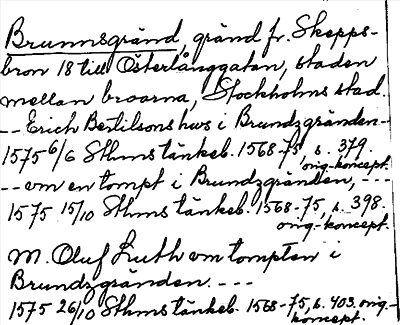 Brunnsgränd, gränd fr. Skepps-
bron 18 till Österlånggatan, staden
mellan broarna, Stockholms stad.
-- Erich Bertilsons hws i Brundzgränden--
1575 6/6 Sthms tänkeb. 1568-75, s. 379.
orig-koncept.
-- om en tompt i Brundzgränden, ---
1575 15/10 Sthms tänkeb. 1568-75, s. 398.
orig-koncept.
M. Oluf Luth om tompten i
Brundzgränden. ---
1575 26/10 Sthms tänkeb. 1568-75, s. 403. orig.-
koncept.